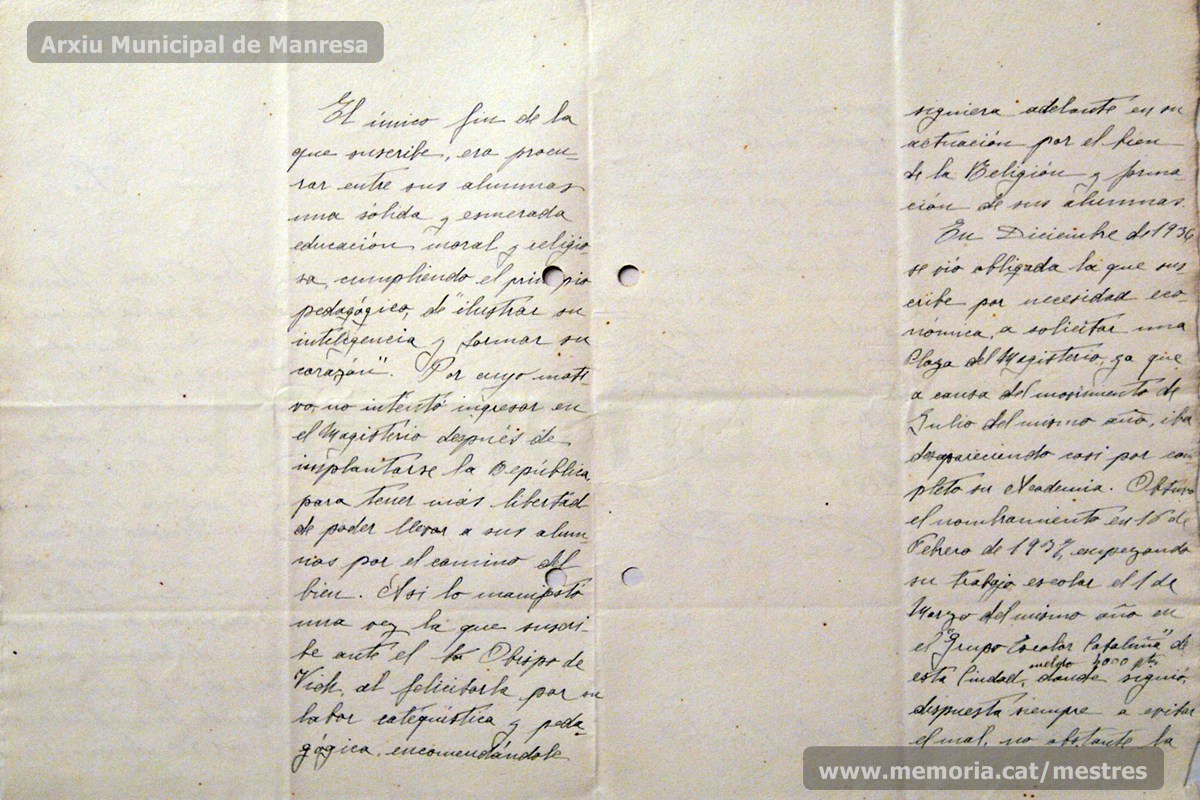 Arxiu Municipal de Manresa
El único fin de la
que suscribe, era procu-
rar entre sus alumnas
una sólida y esmerada
educación moral y religio
sa, cumpliendo el principio
pedagógico, de "ilustrar su
inteligencia y formar su
corazón". Por cuyo moti
vo, no intentó ingresar en
el Magisterio después de
implantarse la República,
para tener más libertad
de poder llevar a sus alum-
nas por el camino del
bien. Así lo manifestó
una vez la que suscri-
be ante el Obispo de
Vich, al felicitarla por su
labor catequística y peda-
gógica, encomendándole
siguiera adelante en su
actuación por el bien
de la Religión y forma
ción de sus alumnas.
En Diciembre de 1936
se vió obligada la que sus
cribe por necesidad eco-
nómica, a solicitar una
Plaza del Magisterio, ya que
a causa del movimiento de
Julio del mismo año, iba
desapareciendo casi por com
pleto su Academia. Obtuvo
el nombramiento en 16 de
Febrero de 1937, empezando
su trabajo escolar el 1 de
Marzo del mismo año en
el "Grupo Escolar Cataluña" de
sueldo 4000 pts.
esta Ciudad, donde siguió,
dispuesta siempre a evitar
el mal, no obstante la
www.memoria.cat/mestres